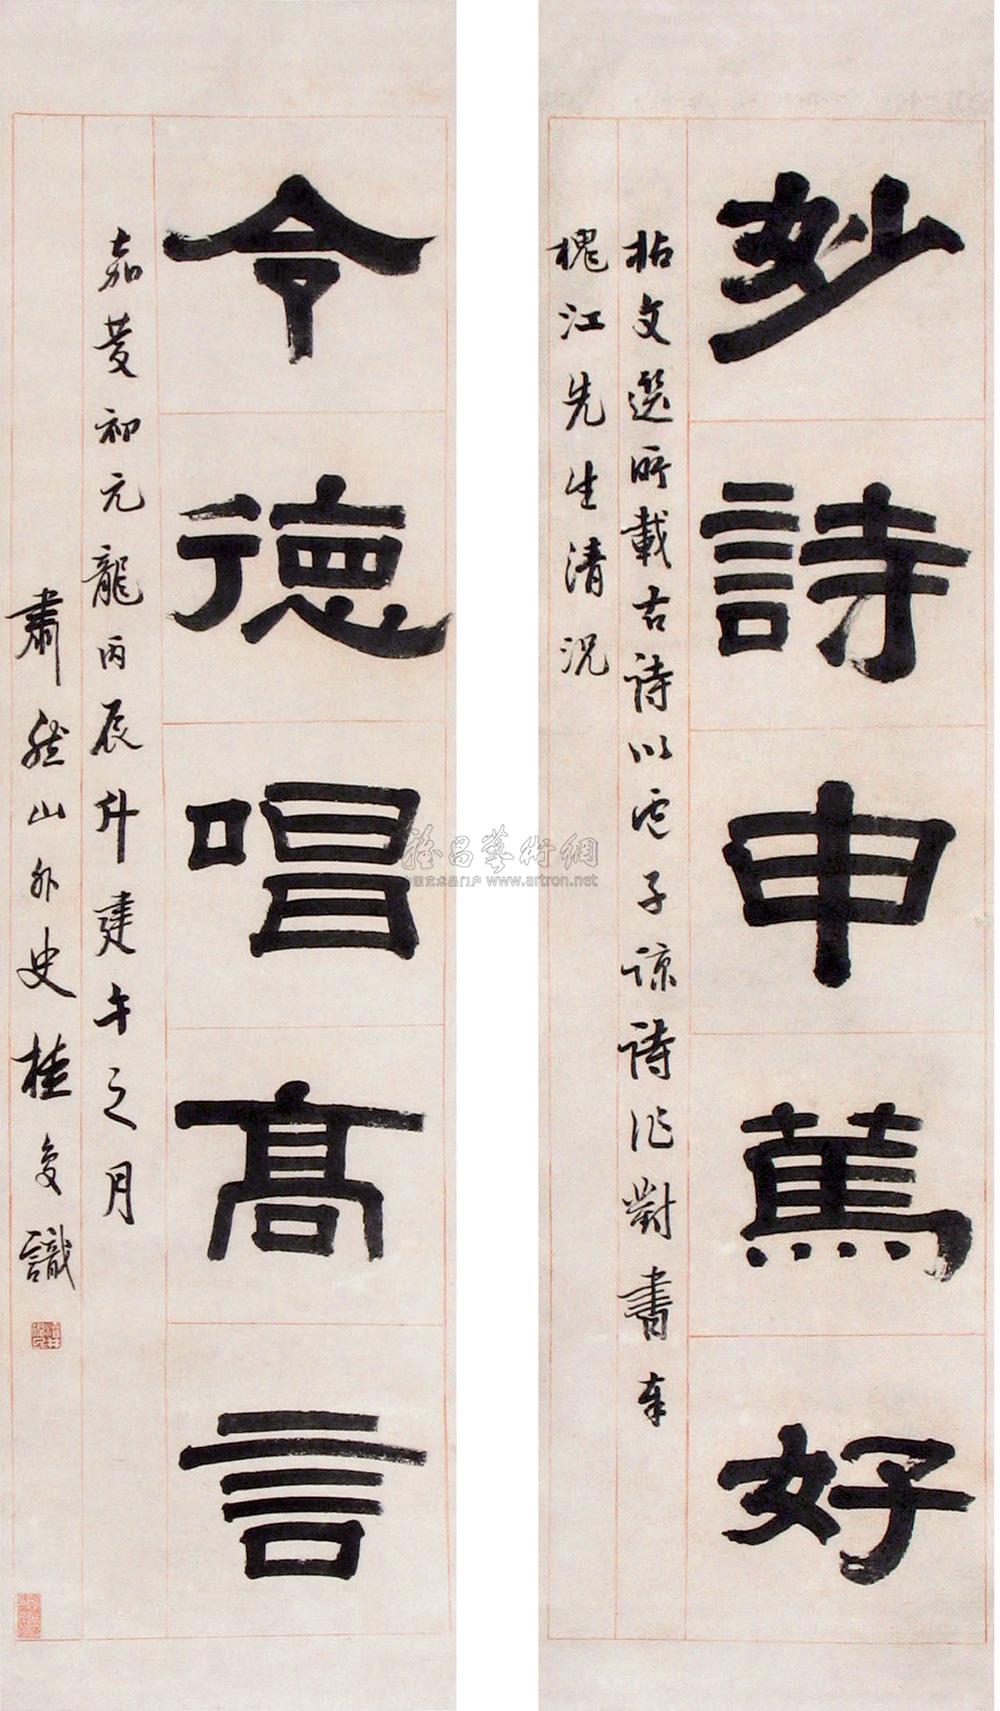 妙詩申篤好
拈文選所載古詩以盧子諒詩作對書奉
槐江先生清況
令德唱高言
嘉慶初元龍丙辰斗建午之月
肅然山外史桂復識
雅昌藝術網
中国艺术品门户 www.artron.net